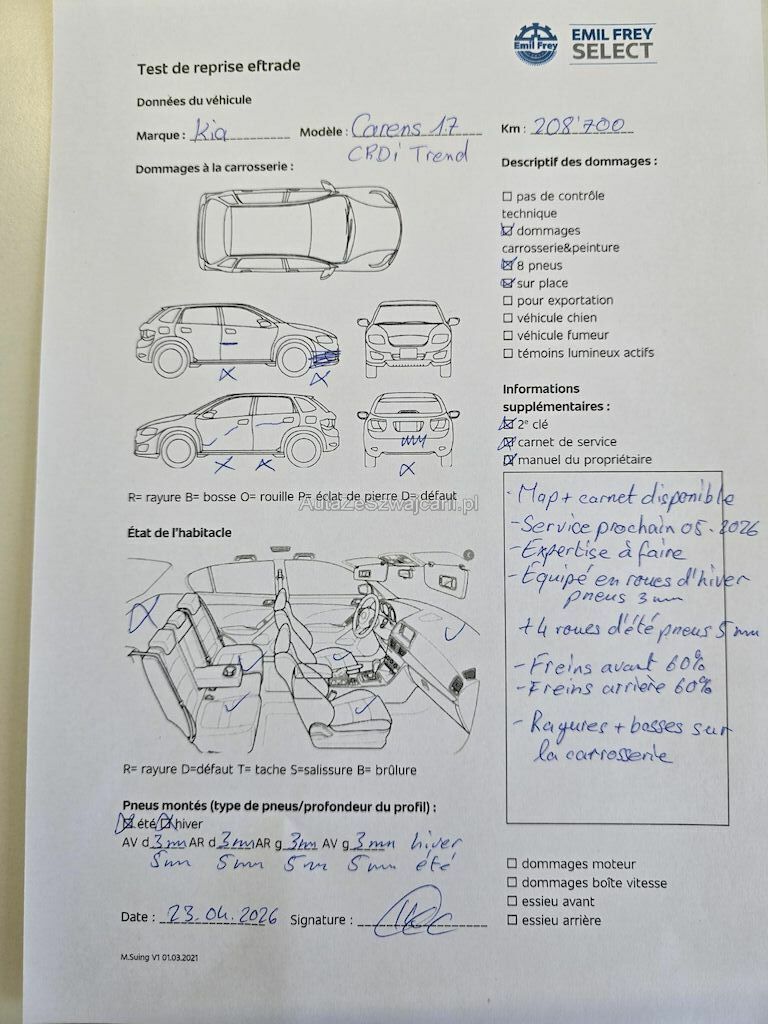 Emil Frey
EMIL FREY
SELECT
Test de reprise eftrade
Données du véhicule
Marque : Kia Modèle : Carens 1.7 Km : 208'700
CRDi Trend
Dommages à la carrosserie :
Descriptif des dommages :
pas de contrôle
technique
dommages
carrosserie&peinture
8 pneus
sur place
pour exportation
véhicule chien
véhicule fumeur
témoins lumineux actifs
Informations
supplémentaires :
2e clé
carnet de service
manuel du propriétaire
R= rayure B= bosse O= rouille P= éclat de pierre D= défaut
AutaZeSzwajcarii.pl
- Map + carnet disponible
- Service prochain 05.2026
- Expertise à faire
- Équipé en roues d'hiver
pneus 3 mm
+ 4 roues d'été pneus 5 mm
- Freins avant 60%
- Freins arrière 60%
- Rayures + bosses sur
la carrosserie
État de l'habitacle
R= rayure D=défaut T= tache S=salissure B= brûlure
Pneus montés (type de pneus/profondeur du profil) :
été hiver
AV d 3 mm AR d 3 mm AR g 3 mm AV g 3 mm hiver
5 mm 5 mm 5 mm 5 mm été
dommages moteur
dommages boîte vitesse
essieu avant
essieu arrière
Date : 23.04.2026 Signature :
M.Suing V1 01.03.2021